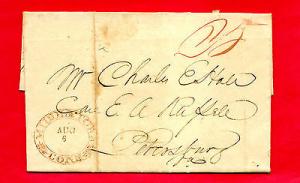 25
Mr Charles E Hale
Care E. A. Raffele
Petersburg
Va
AUG
6
CONN